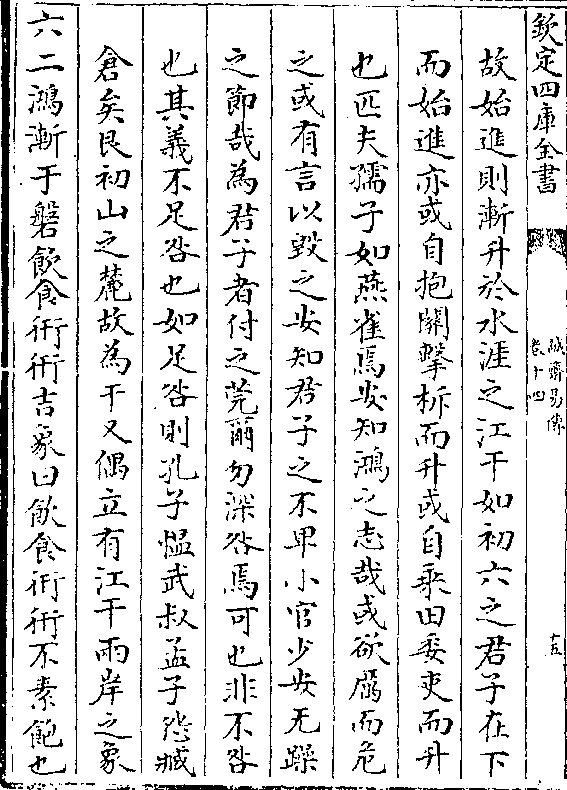 欽定四庫全書
誠齋易傳
卷十四
十五
故始進則漸升於水涯之江干如初六之君子在下
而始進亦或自抱關擊柝而升或自乘田委吏而升
也匹夫孺子如燕雀焉安知鴻之志哉或欲厲而危
之或有言以毀之安知君子之不卑小官少安无躁
之節哉為君子者付之莞爾勿深咎焉可也非不咎
也其義不足咎也如足咎則孔子愠武叔孟子怨臧
倉矣艮初山之麓故為干又偶立有江干兩岸之象
六二鴻漸于磐飲食衎衎吉象曰飲食衎衎不素飽也